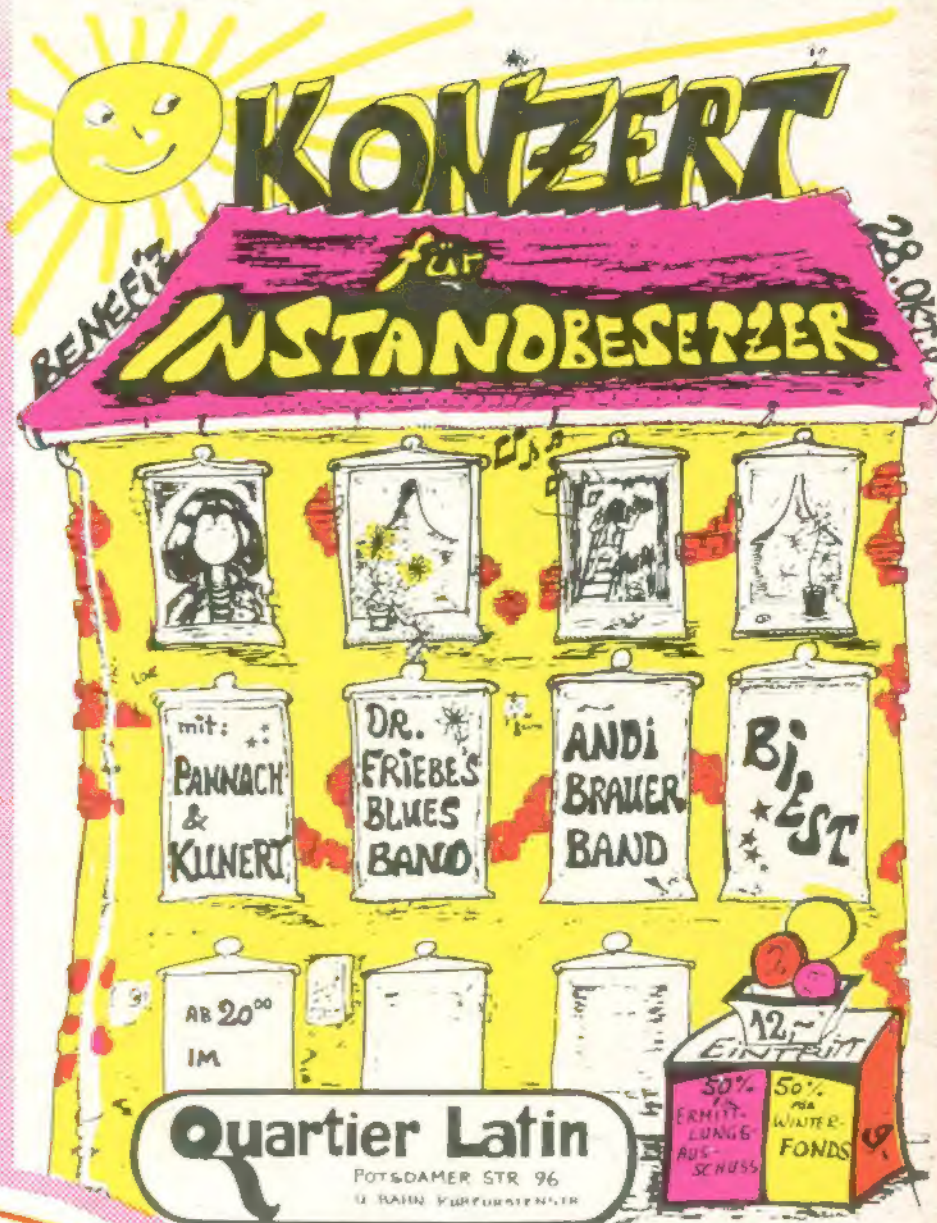 KONZERT
BENEFIZ
28. OKT.
für
INSTANDBESETZER
mit:
PANNACH
&
KUNERT
DR.
FRIEBE'S
BLUES
BAND
ANDI
BRAUER
BAND
BIEST
AB 20⁰⁰
IM
Quartier Latin
POTSDAMER STR 96
U BAHN KURFÜRSTENSTR
12,-
EINTRITT
50%
FÜR
ERMITT-
LUNGS-
AUS-
SCHUSS
50%
FÜR
WINTER-
FONDS